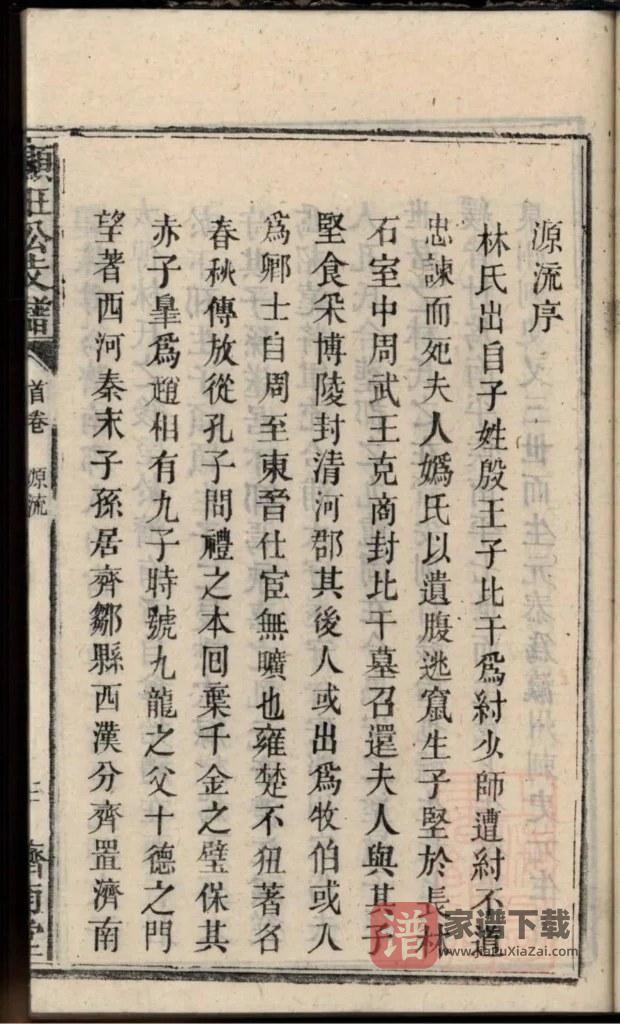 源流序
林氏出自子姓殷王子比干爲紂少師遭紂不道
忠諫而死夫人嬀氏以遺腹逃窟生子堅於長林
石室中周武王克商封比干墓召還夫人與其子
堅食采博陵封清河郡其後人或出爲牧伯或入
爲卿士自周至東晉仕宦無曠也雍楚不狃著名
春秋傳放從孔子問禮之本回棄千金之璧保其
赤子臯爲趙相有九子時號九龍之父十德之門
望著西河秦末子孫居齊鄒縣西漢分齊置濟南
顯 公支譜
首卷
源流
濟南堂
譜
家谱下载
www.JiaPuXiaZai.com